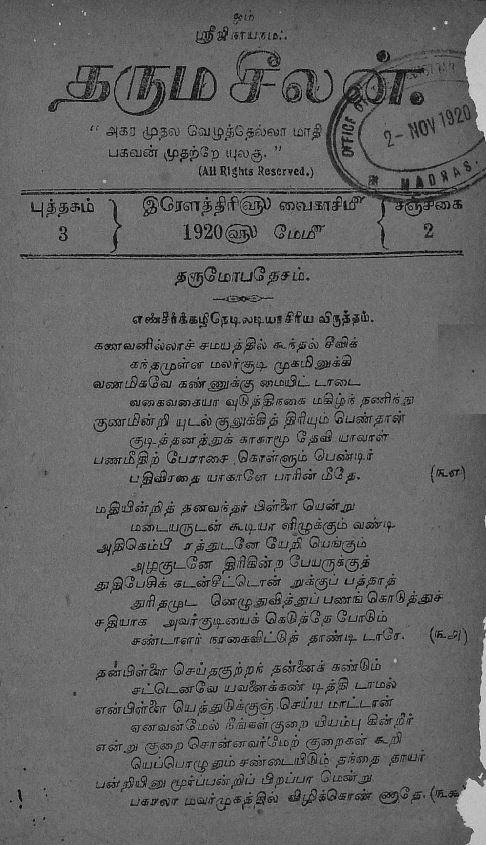 ஓம்
ஸ்ரீஜிநாயநம:.
தரும சீலன்.
OFFICE OF
2- NOV 1920
MADRAS.
“ அகர முதல வெழுத்தெல்லா மாதி
பகவன் முதற்றே யுலகு. ”
(All Rights Reserved.)
புத்தகம் 3
இரௌத்திரி௵ வைகாசிமீ
1920௵ மேமீ
சஞ்சிகை 2
தருமோபதேசம்.
எண்சீர்க்கழிநெடிலடியாசிரிய விருத்தம்.
கணவனில்லாச் சமயத்தில் கூந்தல் சீவிக்
கந்தமுள்ள மலர்சூடி முகமினுக்கி
வணமிகவே கண்ணுக்கு மையிட் டாடை
வகைவகையா வுடுத்திநகை மகிழ்ந் தணிந்து
குணமின்றி யுடல்குலுக்கித் திரியும் பெண்தான்
குடித்தனத்துக் காகாமூ தேவி யாவாள்
பணமீதிற் பேராசை கொள்ளும் பெண்டிர்
பதிவிரதை யாகாளே பாரின் மீதே. (௩௭)
மதியின்றித் தனவந்தர் பிள்ளை யென்று
மடையருடன் கூடியா ளிழுக்கும் வண்டி
அதிகெம்பீ ரத்துடனே யேறி யெங்கும்
அழகுடனே திரிகின்ற பேயருக்குத்
துதிபேசிக் கடன்சீட்டொன் றுக்குப் பத்தாத்
துரிதமுட னெழுதுவித்துப் பணங் கொடுத்துச்
சதியாக அவர்குடியைக் கெடுத்தே போடும்
சண்டாளர் நரகைவிட்டுத் தாண்டி டாரே. (௩௮)
தன்பிள்ளை செய்தகுற்றந் தன்னைக் கண்டும்
சட்டெனவே யவனைக்கண் டித்தி டாமல்
என்பிள்ளை யெத்துடுக்குஞ் செய்ய மாட்டான்
ஏனவன்மேல் நீங்கள்குறை யியம்பு கின்றீர்
என்று குறை சொன்னவர்மேற் குறைகள் கூறி
யெப்பொழுதும் சண்டையிடும் தந்தை தாயர்
பன்றியினு மூர்ப்பன்றிப் பிறப்பா மென்று
பகரலா மவர்முகத்தில் விழிக்கொண் ணாதே. (௩௯)